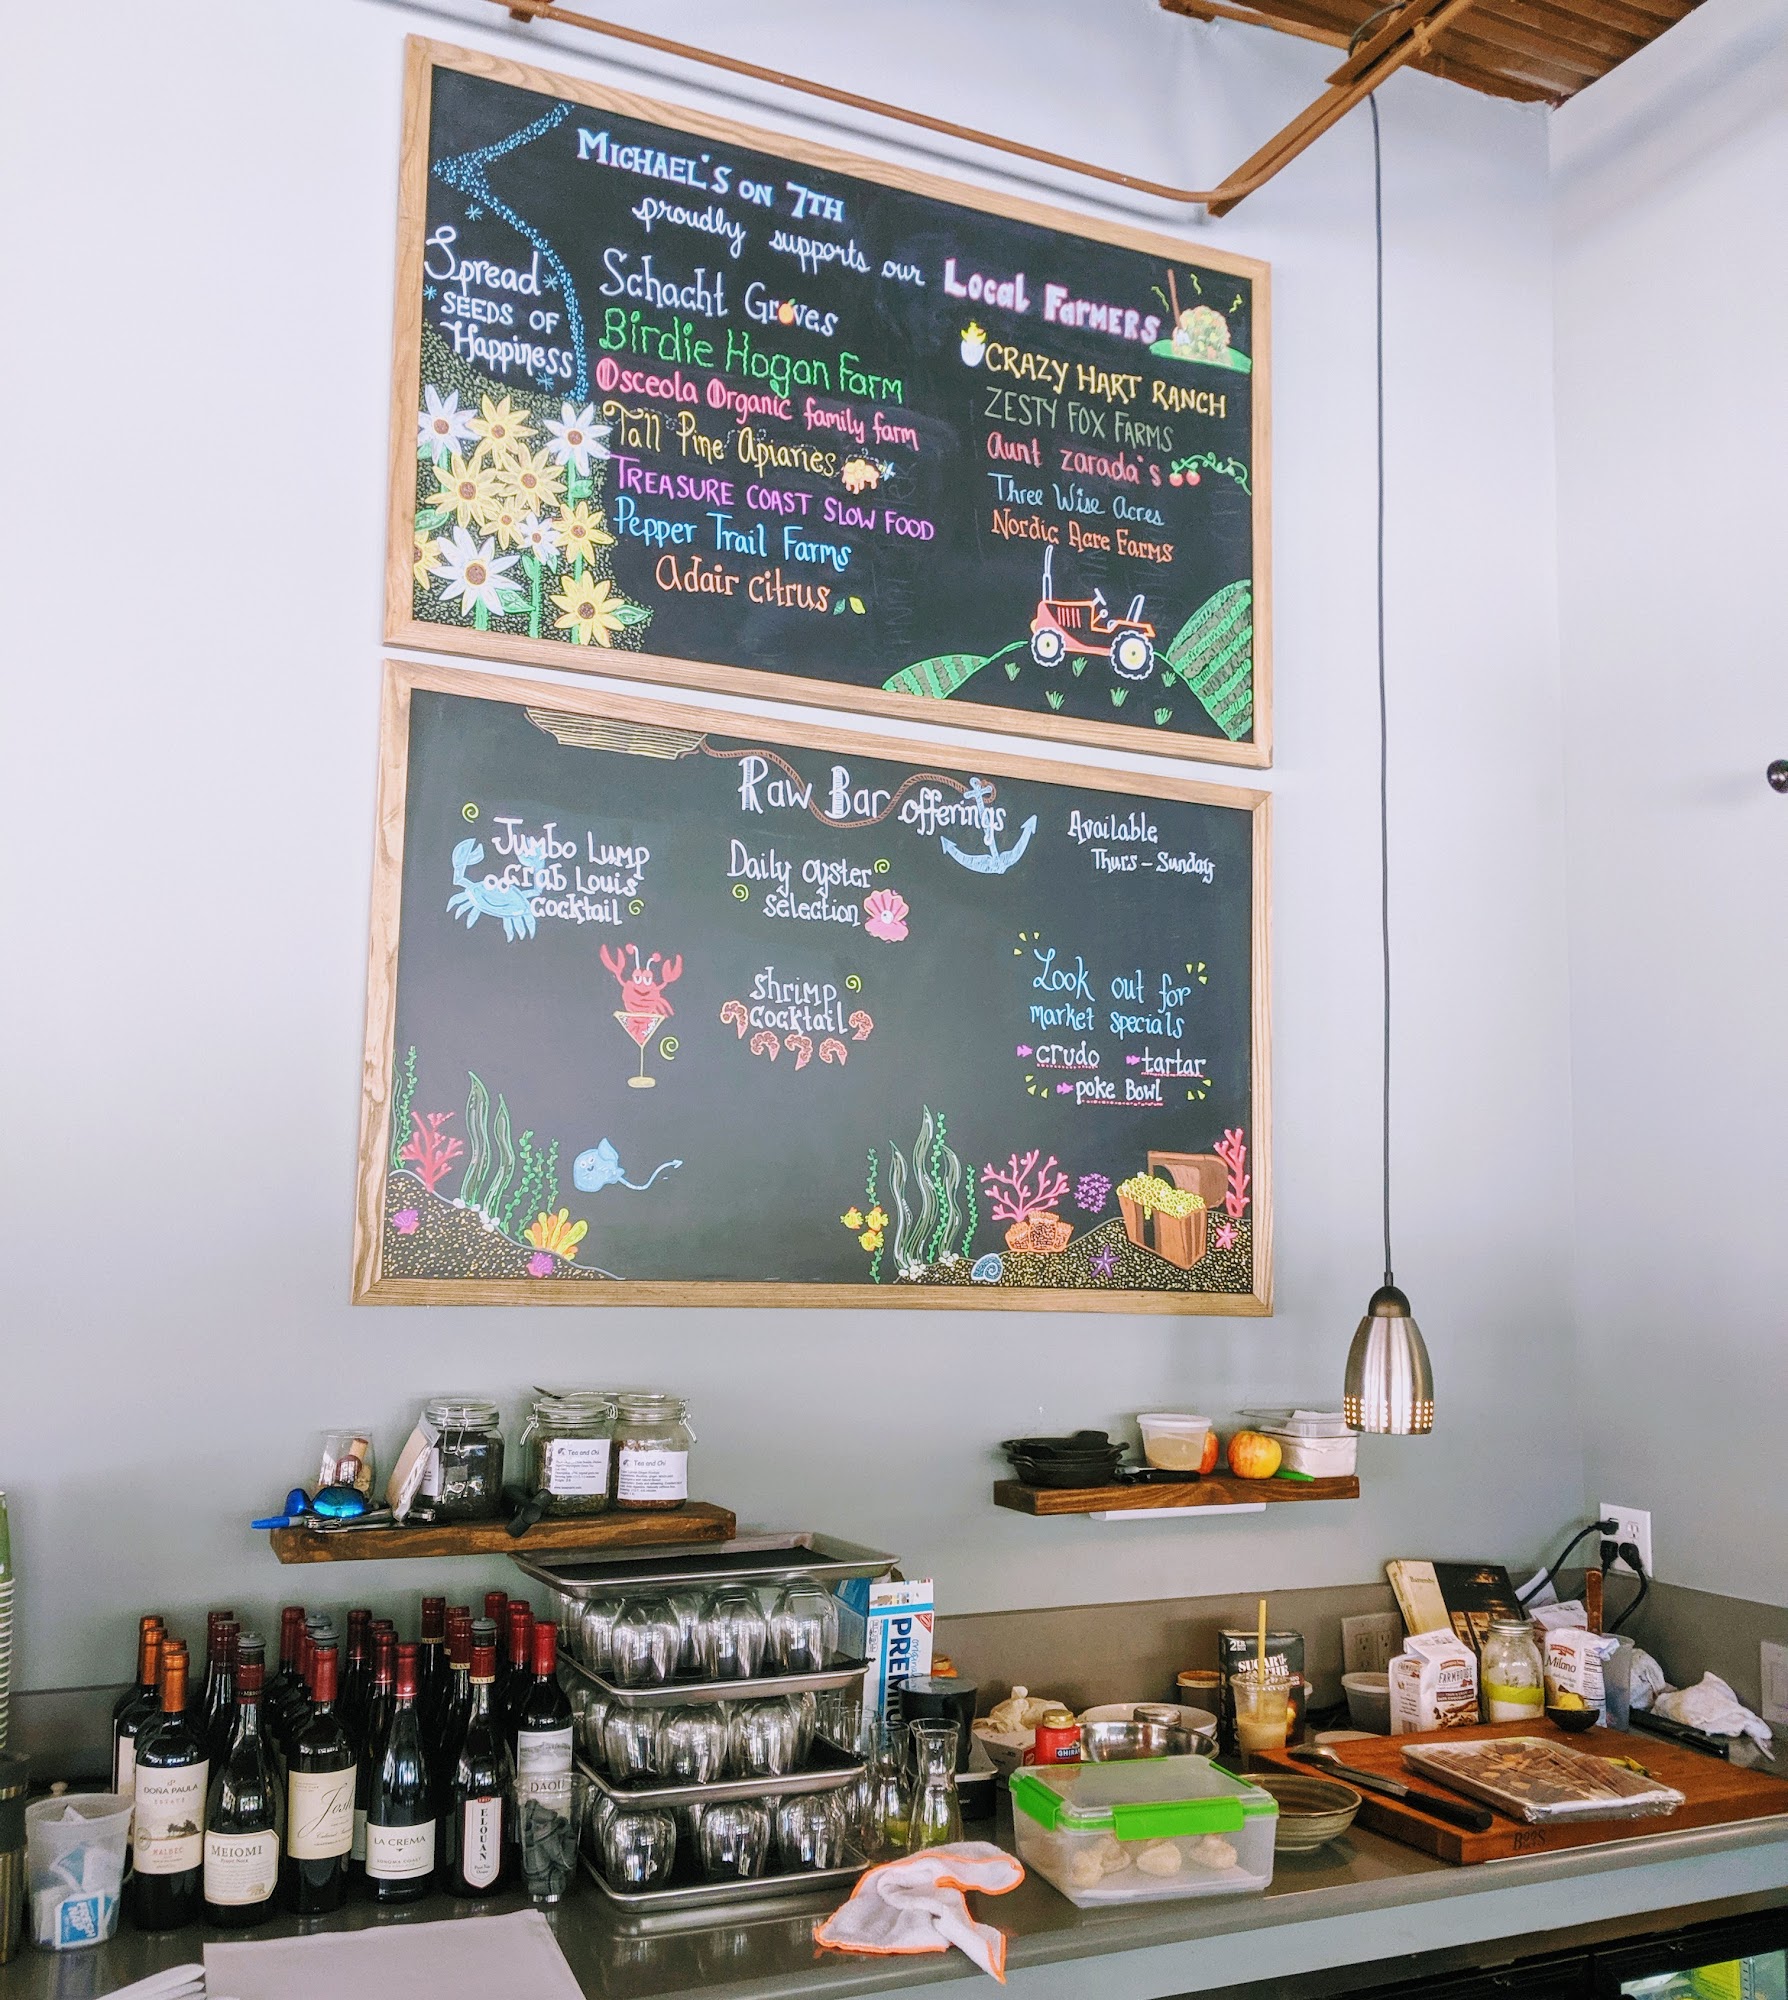 MICHAEL'S ON 7TH
proudly supports our Local FARMERS
Spread
SEEDS OF
Happiness
Schacht Groves
Birdie Hogan Farm
Osceola Organic family farm
Tall Pine Apiaries
TREASURE COAST SLOW FOOD
Pepper Trail Farms
Adair citrus
CRAZY HART RANCH
ZESTY FOX FARMS
Aunt zarada's
Three Wise Acres
Nordic Acre Farms
Raw Bar offerings
Available
Thurs - Sunday
Jumbo Lump
Crab Louis
cocktail
Daily oyster
selection
shrimp
cocktail
Look out for
market specials
crudo
tartar
poke Bowl
Tea and Chi
Tea and Chi
PREMIUM
DOÑA PAULA
ESTATE
MALBEC
MEIOMI
Pinot Noir
Josh
LA CREMA
SONOMA COAST
ELOUAN
DAOU
2 LB
SUGAR
IN THE
FARMHOUSE
Milano
GHIRA
BOOS